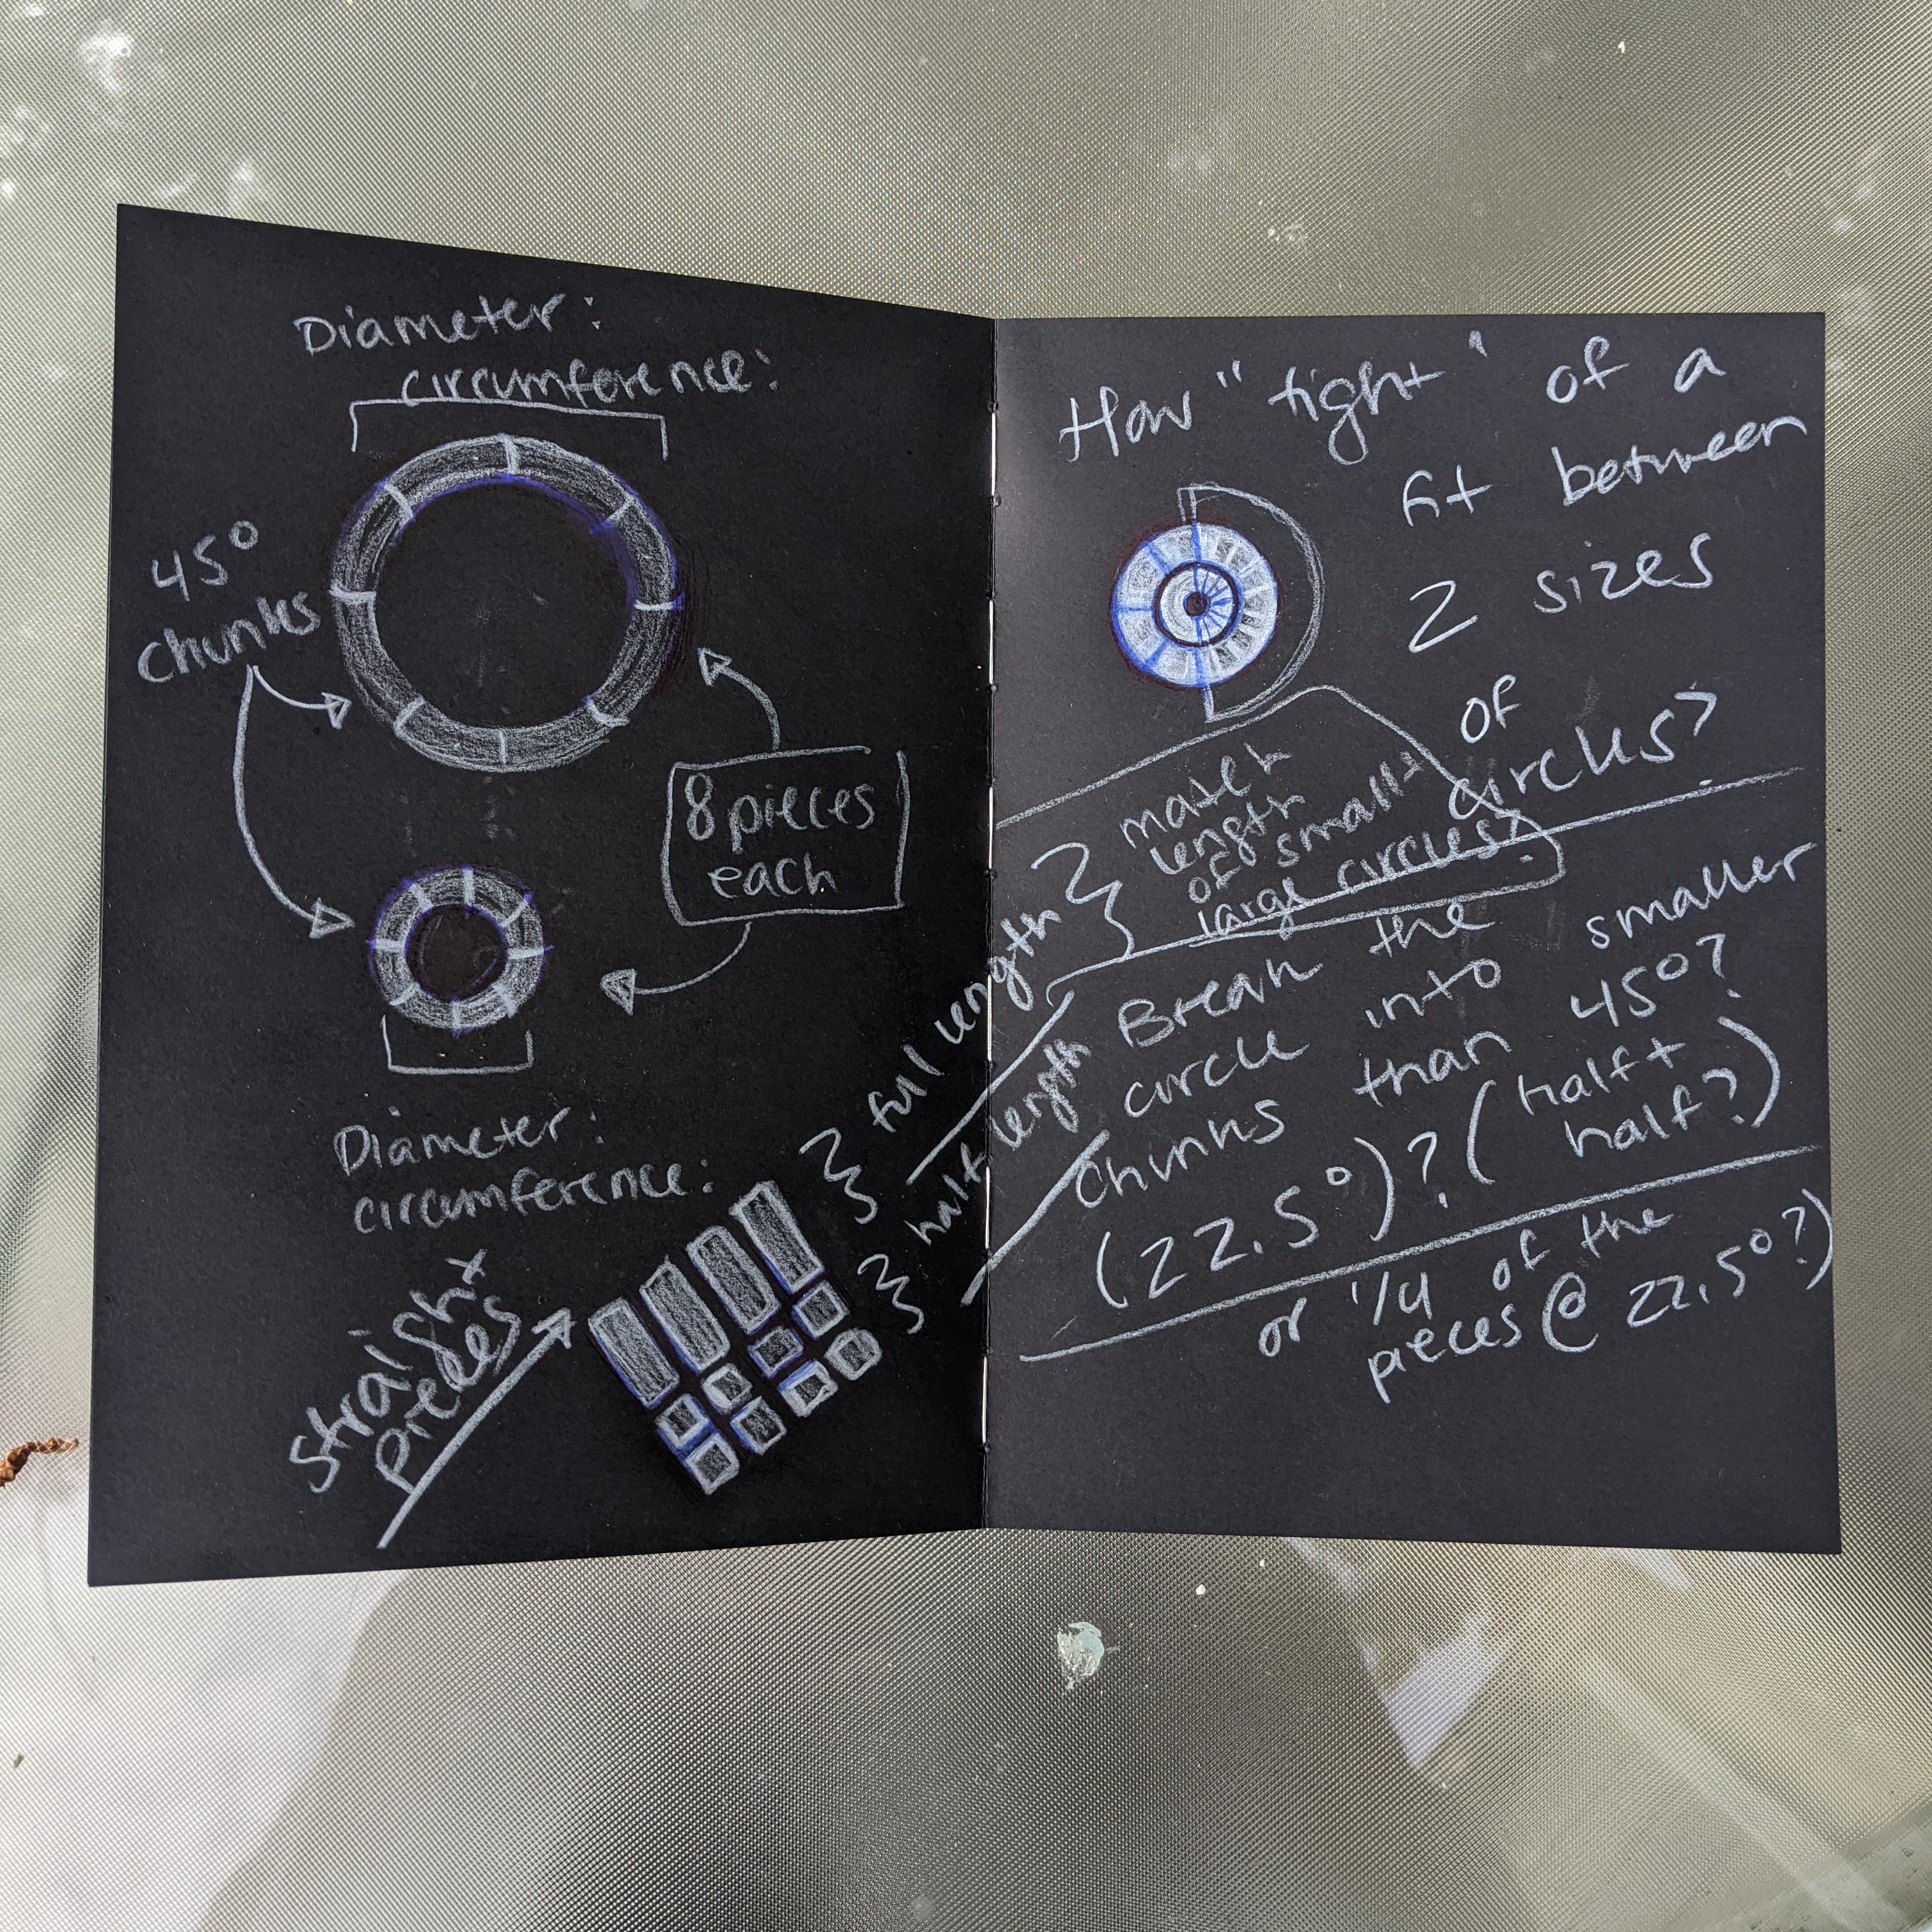 Diameter:
circumference:
45°
chunks
8 pieces
each
Diameter:
circumference:
straight
pieces
full length
half length
How "tight" of a
fit between
2 sizes
of
circles?
match
length
of small +
large circles?
Break the
circle into smaller
chunks than 45°?
(22.5°)? (half +
half?)
or 1/4 of the
pieces @ 22.5°?)